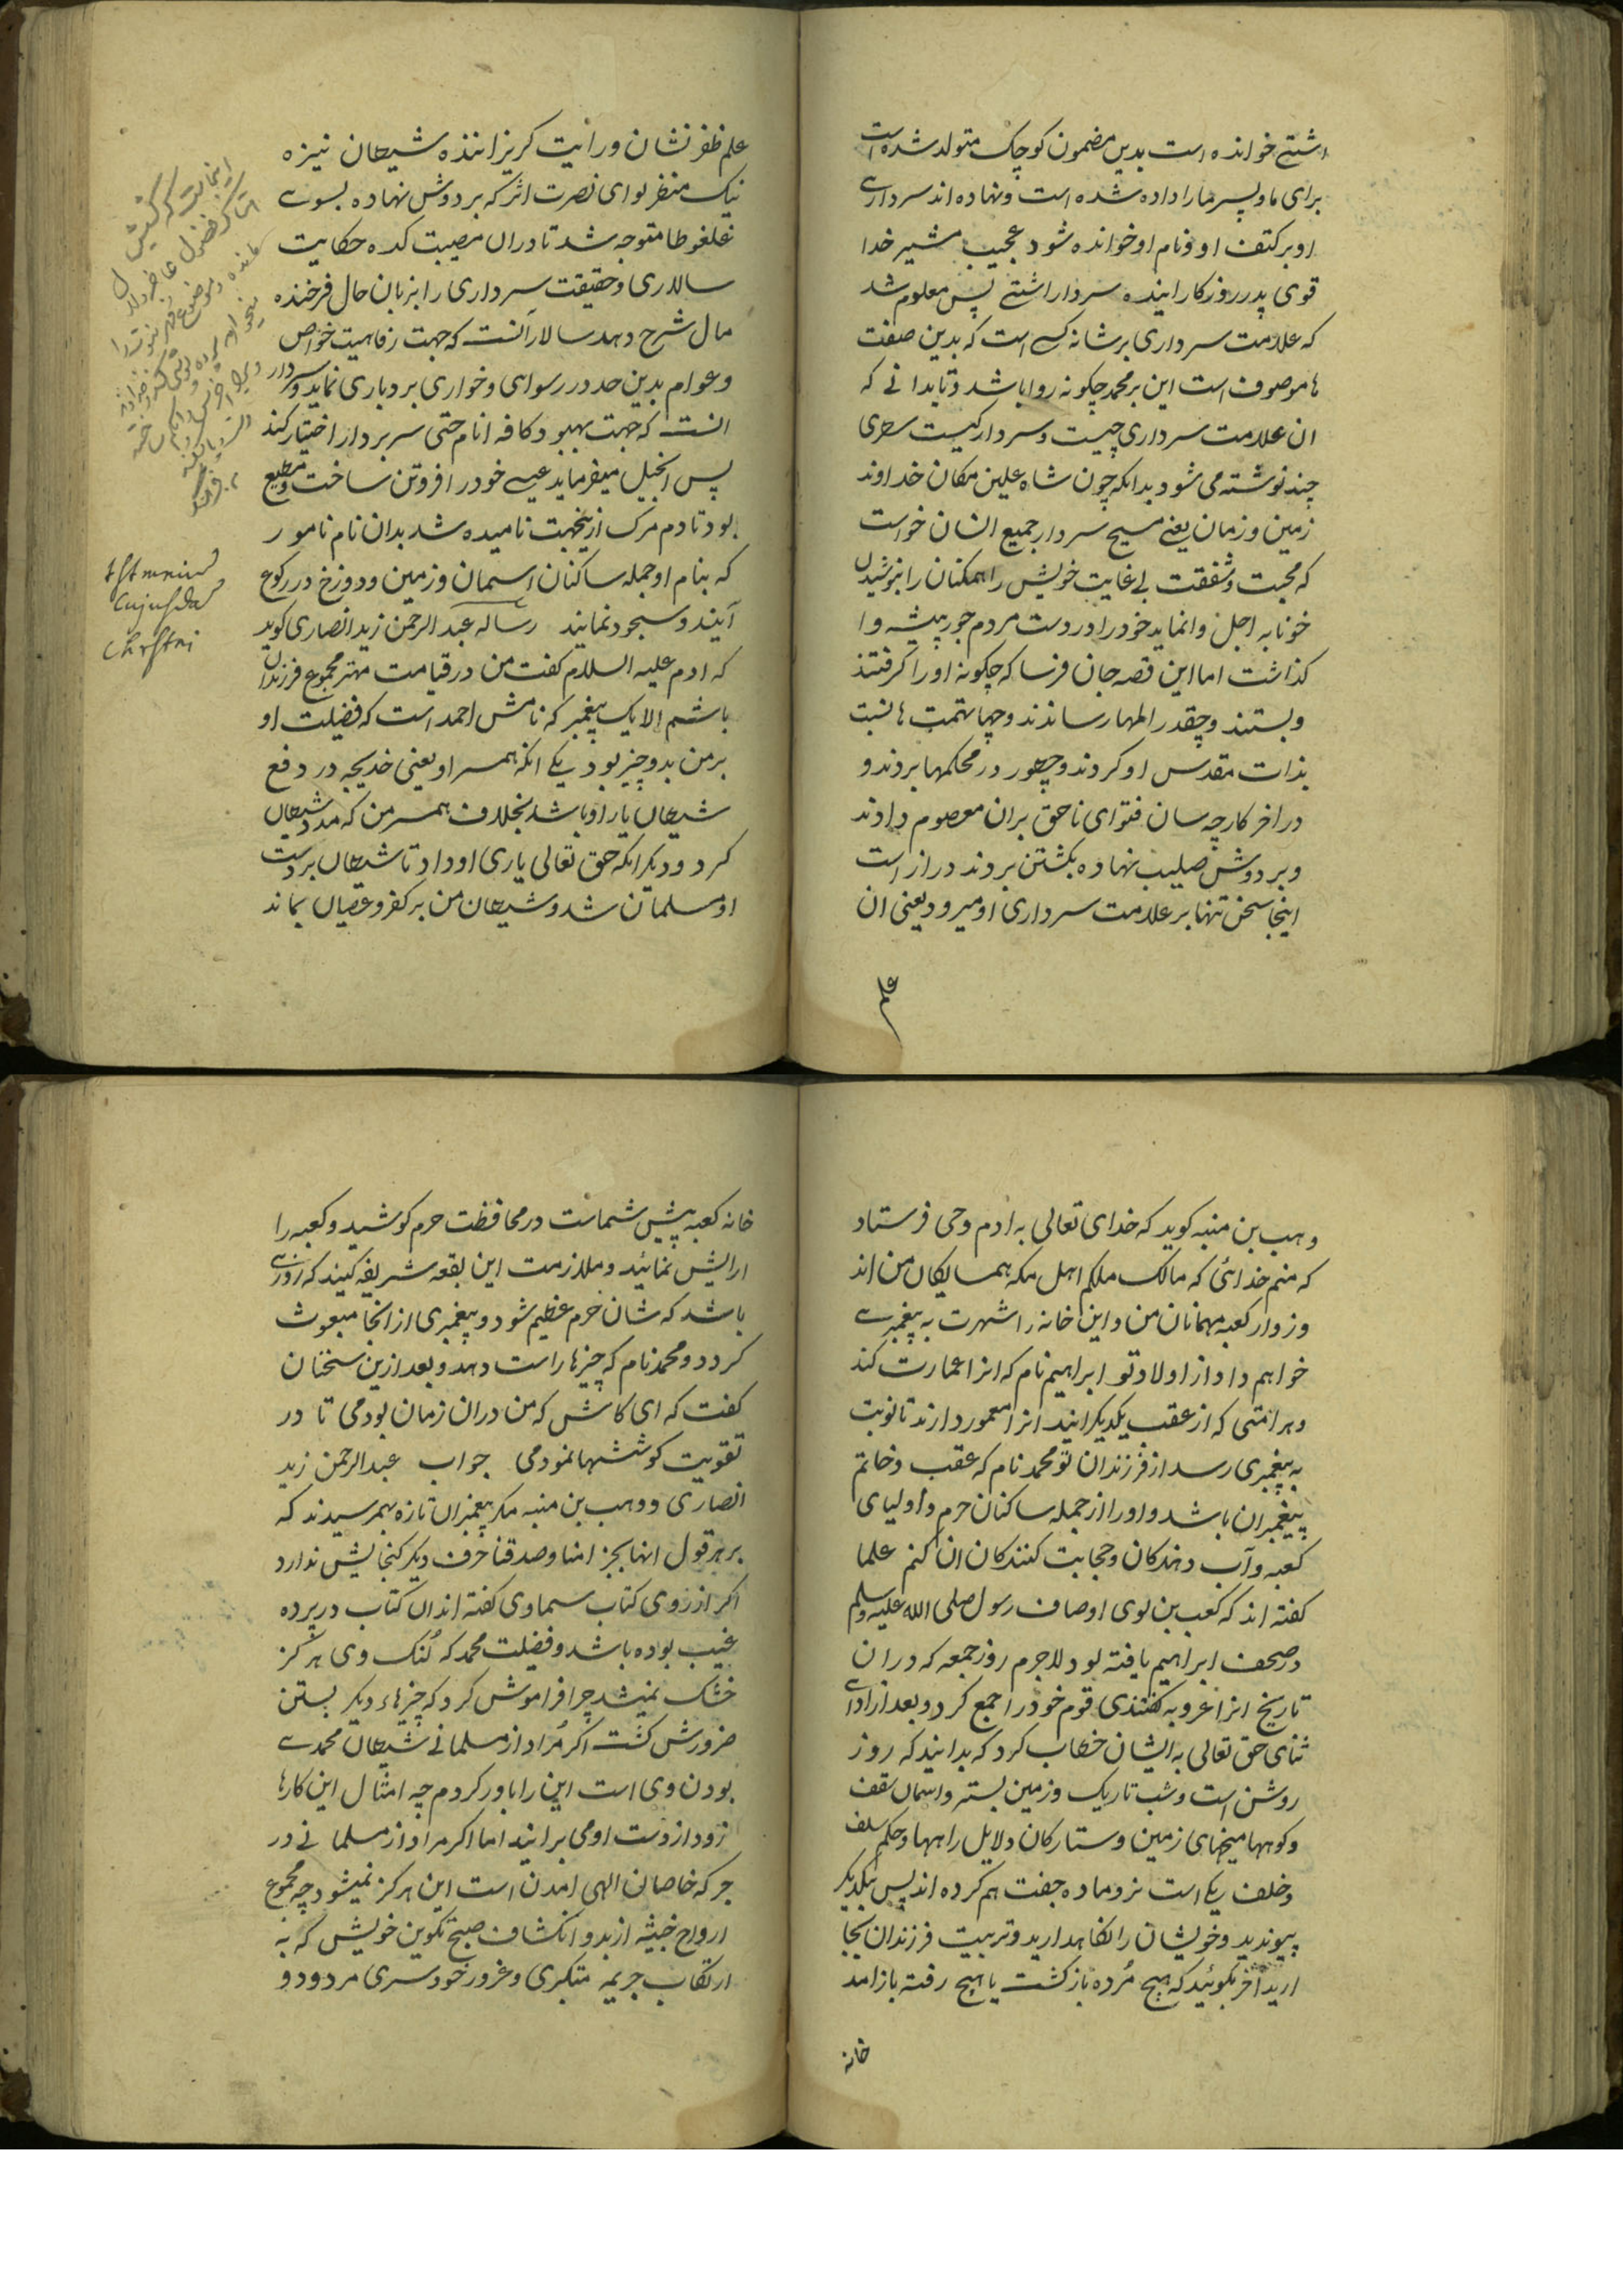 اشتے خوانده است بدین مضمون کوچک متولد شده است
برای ما و پسر مارا داده شده است و نهاده اند سرداری
او بر کتف او و نام او خوانده شود عجیب مشیر خدا
قوی پدر روزکار اینده سردار اشتے پس معلوم شد
که علامت سرداری بر شانه کسے است که بدین صفت
ها موصوف است این بر محمد چکونه روا باشد و تا بدانے که
ان علامت سرداری چیست و سردار کیست سطری
چند نوشته می شود بدانکه چون شاه علین مکان خداوند
زمین و زمان یعنے مسیح سردار جمیع انسان خواست
که محبت و شفقت بے غایت خویش را همکنان را بنوشیدن
خونابه اجل وانماید خود را در دست مردم جور پیشه وا
کذاشت اما این قصه جان فرسا که چکونه اورا کرفتند
و بستند و چقدر المها رساندند و چها تهمت ها نسبت
بذات مقدس او کردند و چطور در محکمها بردند و
در اخر کار چه سان فتوای ناحق بران معصوم دادند
و بر دوش صلیب نهاده بکشتن بردند دراز است
اینجا سخن تنها بر علامت سرداری او میرود یعنی ان
علم
علم ظفر نشان و رایت کریزاننده شیطان نیزه
نیک منظر لوای نصرت اثر که بر دوش نهاده بسوے
غلغوطا متوجه شد تا دران مصیبت کده حکایت
سالاری و حقیقت سرداری را بزبان حال فرخنده
مال شرح دهد سالار آنست که جهت رفاهیت خواص
و عوام بدین حد در رسوای و خواری بردباری نماید و سردار
انست که جهت بهبود کافه انام حتی سر بردار اختیار کند
پس انجیل میفرماید عیسے خود را فروتن ساخت و مطیع
بود تا دم مرک ازینجهت نامیده شد بدان نام نامور
که بنام او جمله ساکنان اسمان و زمین و دوزخ در رکوع
آیند و سجود نمایند رساله عبد الرحمن زید انصاری کوید
که ادم علیه السلام کفت من در قیامت مهتر مجموع فرزندان
باشم الا یک پیغمبر که نامش احمد است که فضیلت او
بر من بدو چیز بود یکے انکه همسر او یعنی خدیجه در دفع
شیطان یار او باشد بخلاف همسر من که مدد شیطان
کرد و دیکر انکه حق تعالی یاری او داد تا شیطان بر دست
او مسلمان شد و شیطان من بر کفر و عصیان بماند
وهب بن منبه کوید که خدای تعالی به ادم وحی فرستاد
که منم خدائی که مالک ملکم اهل مکه همسایکان من اند
و زوار کعبه مهمانان من و این خانه را شهرت به پیغمبرے
خواهم داد از اولاد تو ابراهیم نام که انرا عمارت کند
و هر امتی که از عقب یکدیکر ایند انرا معمور دارند تا نوبت
به پیغمبری رسد از فرزندان تو محمد نام که عقب و خاتم
پیغمبران باشد و اورا از جمله ساکنان حرم و اولیای
کعبه و آب دهندکان و حجابت کنندکان ان کنم علما
کفته اند که کعب بن لوی اوصاف رسول صلی الله علیه وسلم
در صحف ابراهیم یافته بود لاجرم روز جمعه که دران
تاریخ انرا عروبه کفتندی قوم خود را جمع کرد و بعد از ادای
ثنای حق تعالی به ایشان خطاب کرد که بدانید که روز
روشن است و شب تاریک و زمین بسته و اسمان سقف
و کوهها میخهای زمین و ستارکان دلایل راهها و حکم سلف
و خلف یکے است نر و ماده جفت هم کرده اند پس بیکدیکر
پیوندید و خویشان را نکاهدارید و تربیت فرزندان بجا
ارید آخر بکوئید که هیچ مُرده باز کشت یا هیچ رفته باز امد
خانه
خانه کعبه پیش شماست در محافظت حرم کوشید و کعبه را
ارایش نمائید و ملازمت این بقعه شریفه کنید که روزے
باشد که شان حرم عظیم شود و پیغمبری از انجا مبعوث
کردد و محمد نام که چیزها راست دهد و بعد ازین سخنان
کفت که ای کاش که من دران زمان بودمی تا در
تقویت کوششها نمودمی جواب عبد الرحمن زید
انصاری و وهب بن منبه مکر پیغمبران تازه بهم رسیدند که
بر هر قول انها بجز امنا و صدقنا حرف دیکر کنجایش ندارد
اکر از روی کتاب سماوی کفته اند ان کتاب در پرده
غیب بوده باشد و فضیلت محمد که کُنک وی هرکز
خشک نمیشد چرا فراموش کرد که چیزهاء دیکر بستن
ضرورش کشت اکر مُراد از مسلمانے شیطان محمدے
بودن وی است این را باور کردم چه امثال این کارها
زود از دست او می براید اما اکر مراد از مسلمانے در
جرکه خاصان الهی امدن است این هرکز نمیشود چه مجموع
ارواح خبیثه از بدو انکشاف صبح تکوین خویش که به
ارتکاب جریمه متکبری و غرور خود سری مردود و